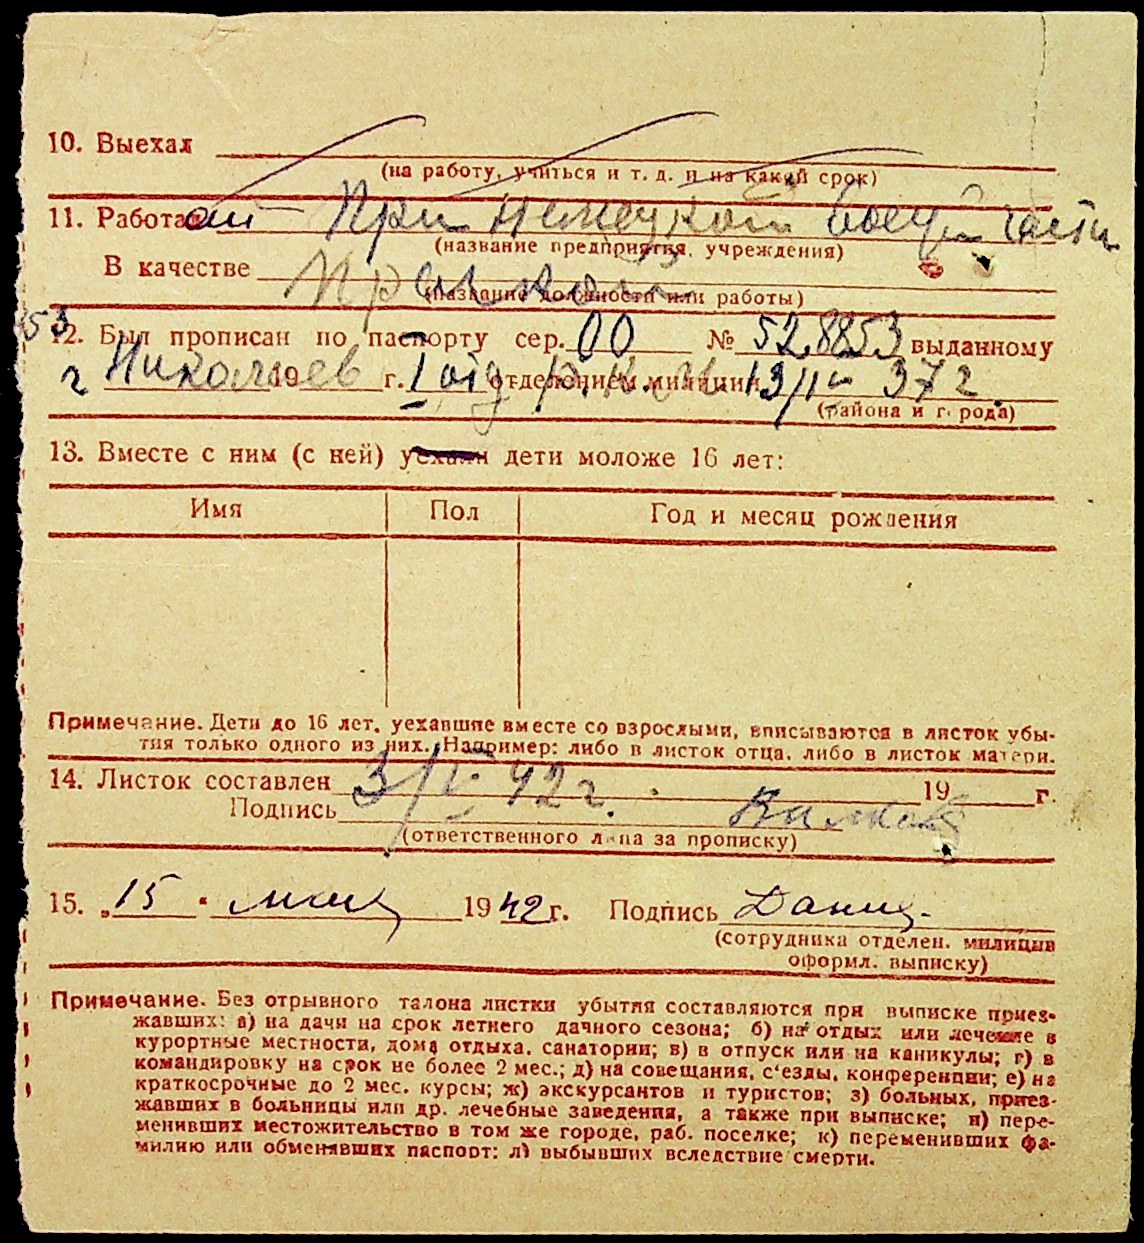 10. Выехал
(на работу, учиться и т. д. и на какой срок)
11. Работа ет При немецкой воен части
(название предприятия, учреждения)
В качестве Прачкой
(название должности или работы)
12. Был прописан по паспорту сер. 00 № 528853 выданному
г Николаев 19 г. I отд отделением милиции 13/II 37 г.
(района и г. рода)
13. Вместе с ним (с ней) уехали дети моложе 16 лет:
Имя Пол Год и месяц рождения
Примечание. Дети до 16 лет, уехавшие вместе со взрослыми, вписываются в листок убы-
тия только одного из них. Например: либо в листок отца, либо в листок матери.
14. Листок составлен 3/V 42 г. 19 г.
Подпись
(ответственного лица за прописку)
15. „15 " 1942 г. Подпись
(сотрудника отделен. милиции
оформл. выписку)
Примечание. Без отрывного талона листки убытия составляются при выписке приез-
жавших: а) на дачи на срок летнего дачного сезона; б) на отдых или лечение в
курортные местности, дома отдыха, санатории; в) в отпуск или на каникулы; г) в
командировку на срок не более 2 мес.; д) на совещания, с'езды, конференции; е) на
краткосрочные до 2 мес. курсы; ж) экскурсантов и туристов; з) больных, приез-
жавших в больницы или др. лечебные заведения, а также при выписке; и) пере-
менивших местожительство в том же городе, раб. поселке; к) переменивших фа-
милию или обменявших паспорт; л) выбывших вследствие смерти.